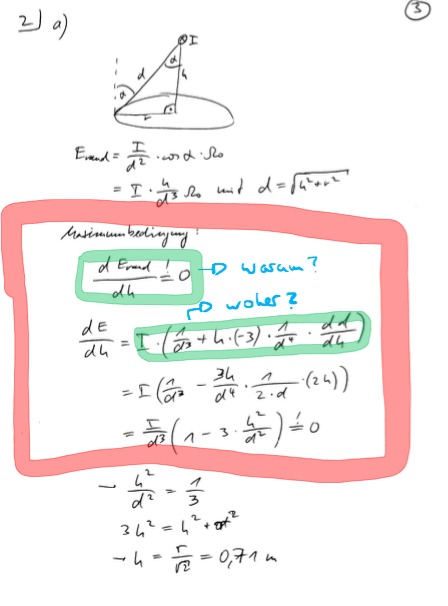 ③
2) a)
I
α
d
h
α
r
E_Rand = I/d² · cos α · Ω₀
= I · h/d³ Ω₀ mit d = √(h²+r²)
Maximumbedingung:
d E_Rand / dh =! 0 → warum?
→ woher?
dE/dh = I · (1/d³ + h · (-3) · 1/d⁴ · dd/dh)
= I (1/d³ - 3h/d⁴ · 1/(2·d) · (2h))
= I/d³ (1 - 3 · h²/d²) =! 0
→ h²/d² = 1/3
3h² = h² + r²
→ h = r/√2 = 0,71 m